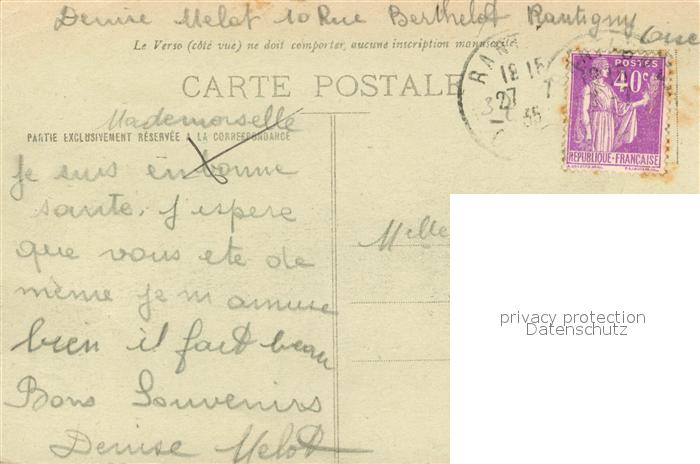 Denise Melot 10 Rue Berthelot Rantigny Oise
Le Verso (côté vue) ne doit comporter aucune inscription manuscrite.
CARTE POSTALE
RAN
19 15
27 7
35
POSTES
40c
REPUBLIQUE-FRANÇAISE
Mademoiselle
PARTIE EXCLUSIVEMENT RÉSERVÉE A LA CORRESPONDANCE
Je suis en bonne
santé, j'espere
que vous ete de
même je m amuse
bien il fait beau
Bons Souvenirs
Denise Melot
Melle
privacy protection
Datenschutz